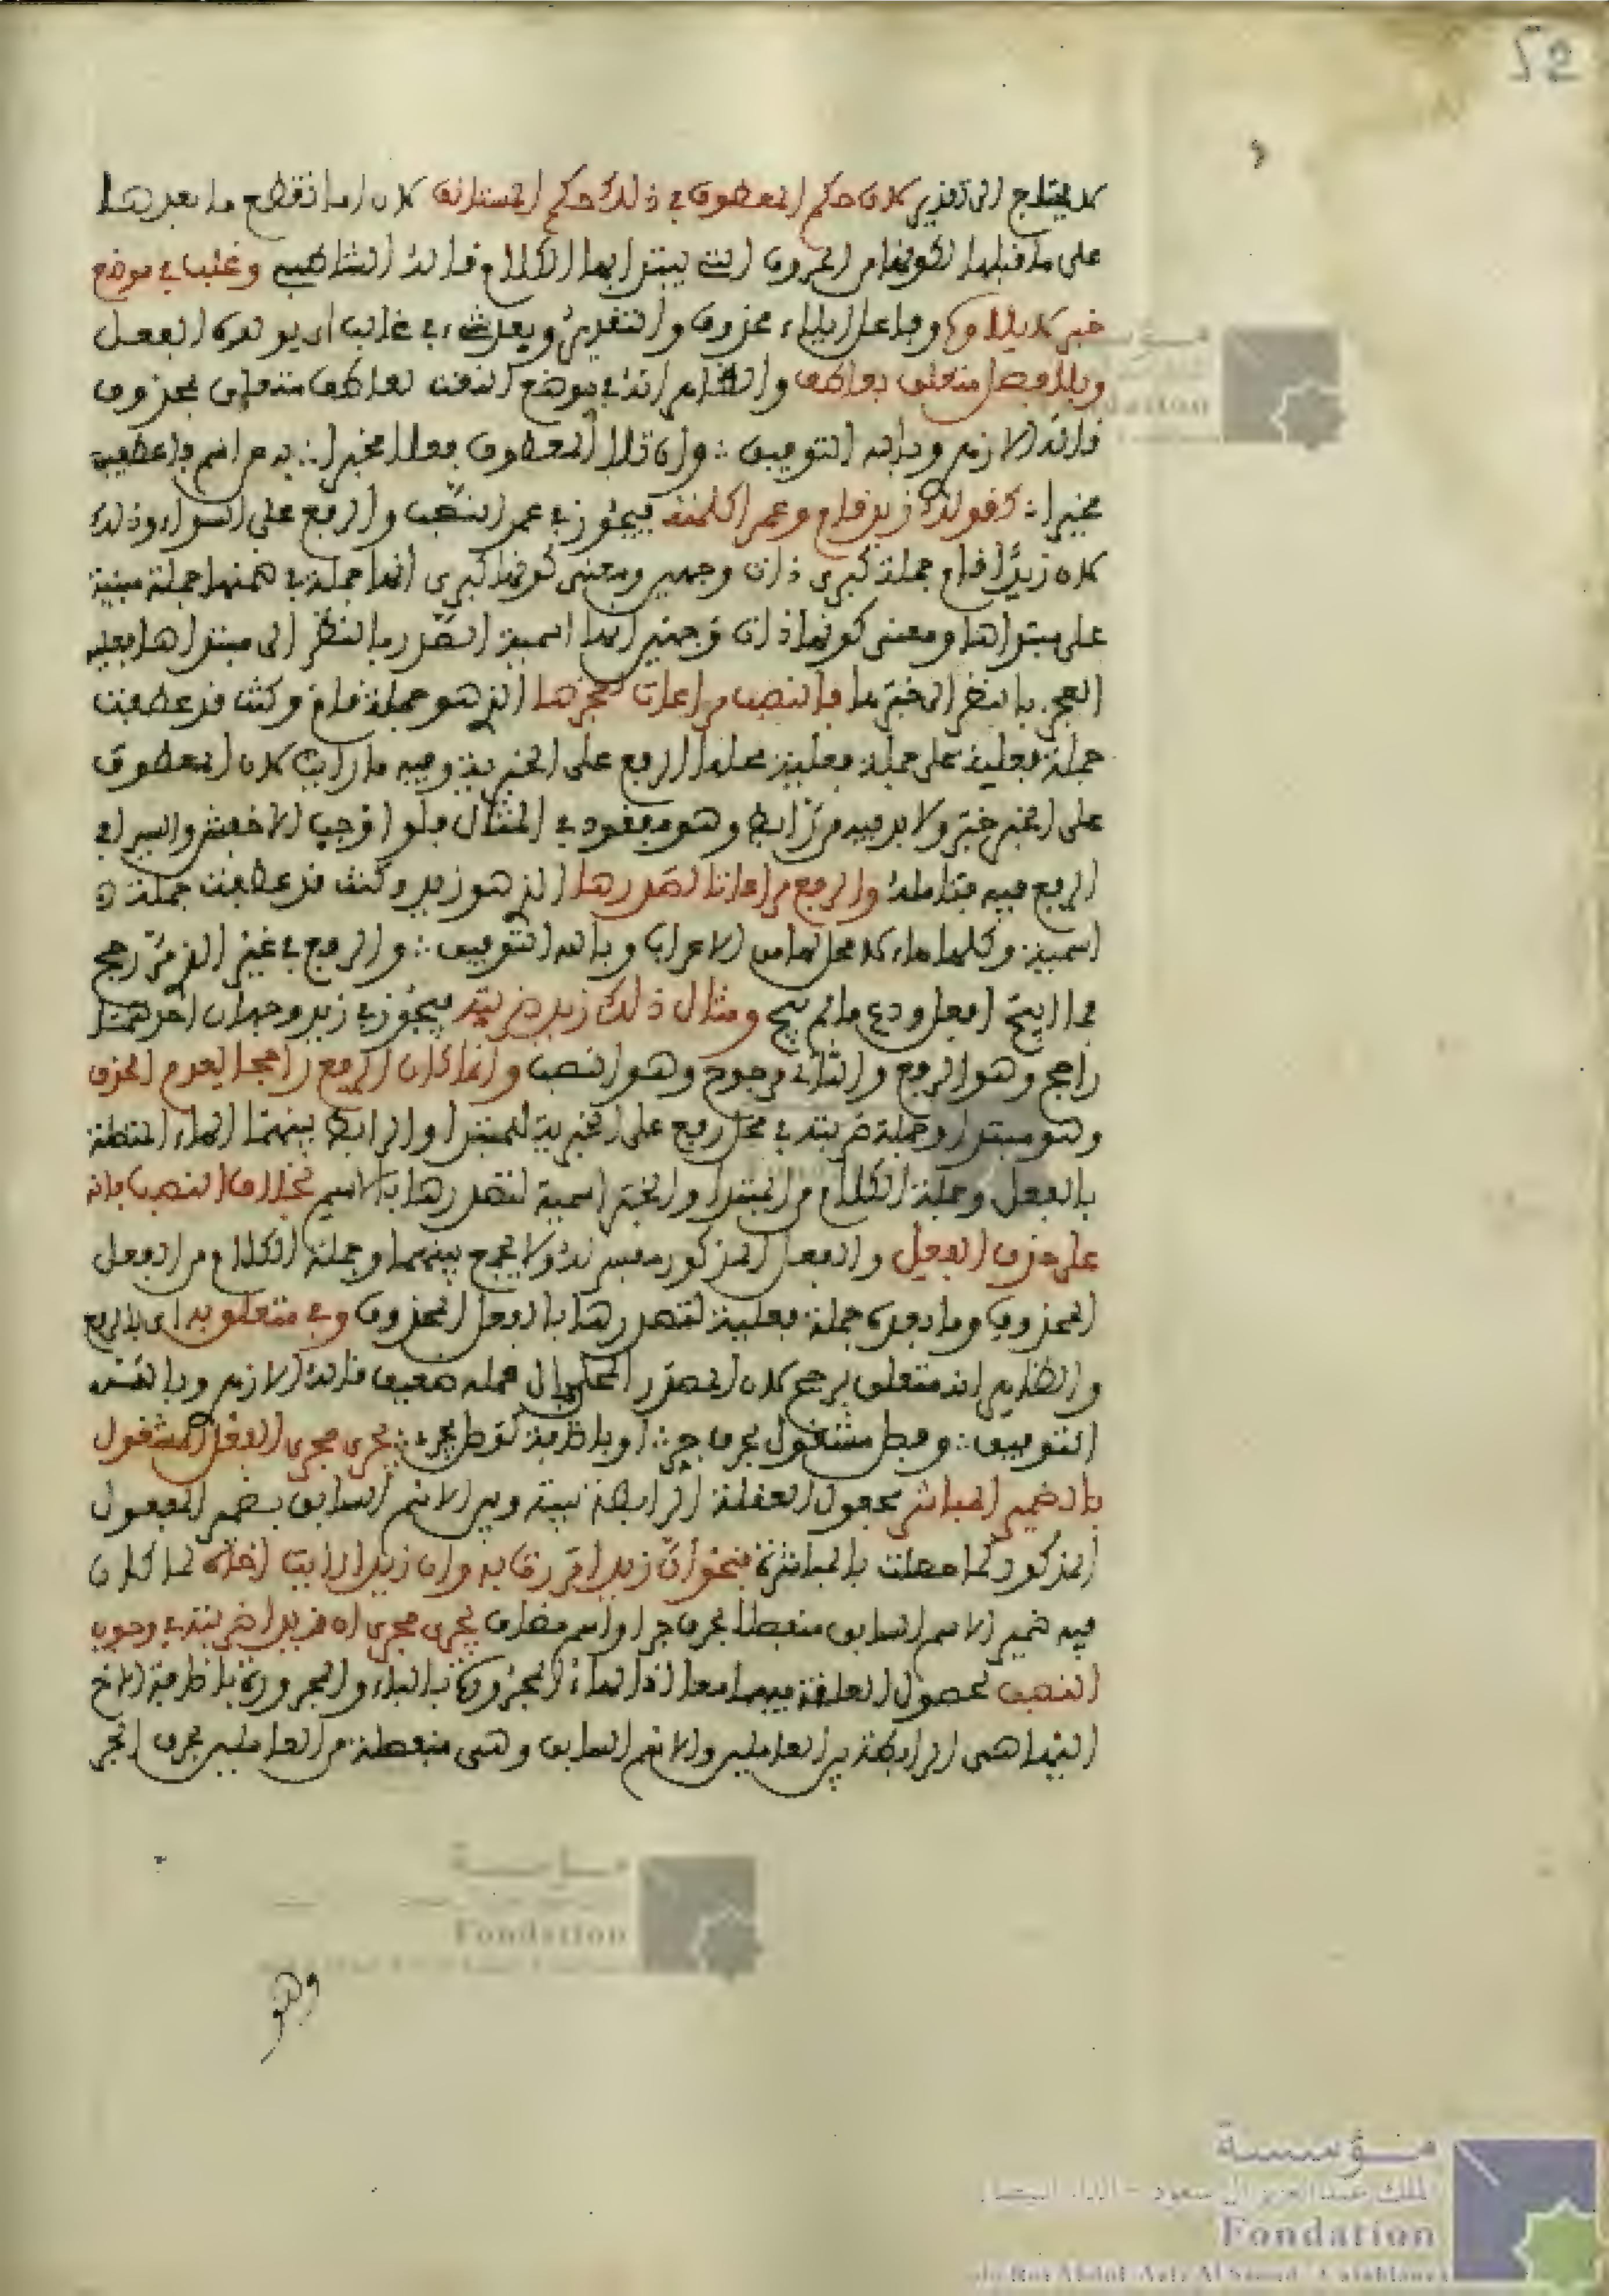 لا يحتاج الى تقدير لان حكم المعطوف في ذلك حكم المستانف لان اما تقطع ما بعدها
على ما قبلها لكونها من الحروف التي يبتدا بها الكلام قاله الشاطبي وغلب في موضع
خبر لايلاوه وفاعل ايلاء محذوف والتقدير وبعد شيء غالب ان يولوه الفعل
وبلا فصل متعلق بعاطف والظاهر انه في موضع النعت لعاطف متعلق بمحذوف
قاله الازهري وبالله التوفيق ∴ وان تلا المعطوف فعلا مخبرا ∴ به عن اسم فاعطفن
مخيرا ∴ كقولك زيد قام وعمرا كلمته فيجوز في عمر النصب والرفع على السواء وذلك
لان زيدا قام جملة كبرى ذات وجهين ومعنى كونها كبرى انها جملة في ضمنها جملة مبنية
على مبتداها ومعنى كونها ذات وجهين انها اسمية الصدر بالنظر الى مبتداها فعلية
العجز بالنظر الى خبرها فالنصب مراعات لعجزها الذي هو جملة قام وكنت قد عطفت
جملة فعلية على جملة فعلية محلها الرفع على الخبرية وفيه ما رايت لان المعطوف
على الخبر خبر ولا بد فيه من رابط وهو مفقود في المثال فلو اوجب الاخفش والسيرافي
الرفع فيه فتامله والرفع مراعاتا لصدرها الذي هو زيد وكنت قد عطفت جملة
اسمية وكلها ماء لا محل لها من الاعراب وبالله التوفيق ∴ والرفع في غير الذي مر رجح
فما ابيح افعل ودع ما لم يبح ومثال ذلك زيد ضربته فيجوز في زيد وجهان احدهما
راجح وهو الرفع والثاني مرجوح وهو النصب وانما كان الرفع راجحا لعدم الحذف
وهو مبتدا وجملة ضربته في محل رفع على الخبرية للمبتدا والرابط بينهما الهاء المتصلة
بالفعل وجملة الكلام من المبتدا والخبر اسمية لتصدرها بالاسم بخلاف النصب فانه
على حذف الفعل والفعل المذكور مفسر له ولا يجمع بينهما وجملة الكلام من الفعل
المحذوف وما بعده جملة فعلية لتصدرها بالفعل المحذوف وفي متعلق به اي بالرفع
والظاهر انه متعلق برجح لان المصدر المحلى بال عمله ضعيف قاله الازهري وبالله
التوفيق ∴ وفصل مشغول بحرف جر ∴ او باضافة كوصل يجري ∴ يجري مجرى الفعل المشغول
بالضمير المباشر لحصول العلقة الرابطة بينه وبين الاسم السابق بضمير المفعول
المذكور كما حصلت بالمباشرة فنحو ان زيدا مررت به وان زيدا رايت اخاه لما كان
فيه ضمير الاسم السابق منفصلا بحرف جر او اسم مضاف يجري مجرى ان زيدا ضربته في وجوب
النصب لحصول العلقة فيهما معا اذ الهاء المجرورة بالباء والمجرورة باضافة الاخ
اليها هي الرابطة بين العاملين والاسم السابق وهي منفصلة من العاملين بحرف الجر
وهو
مؤسسة
الملك عبد العزيز آل سعود - الدار البيضاء
Fondation
du Roi Abdul-Aziz Al Saoud - Casablanca